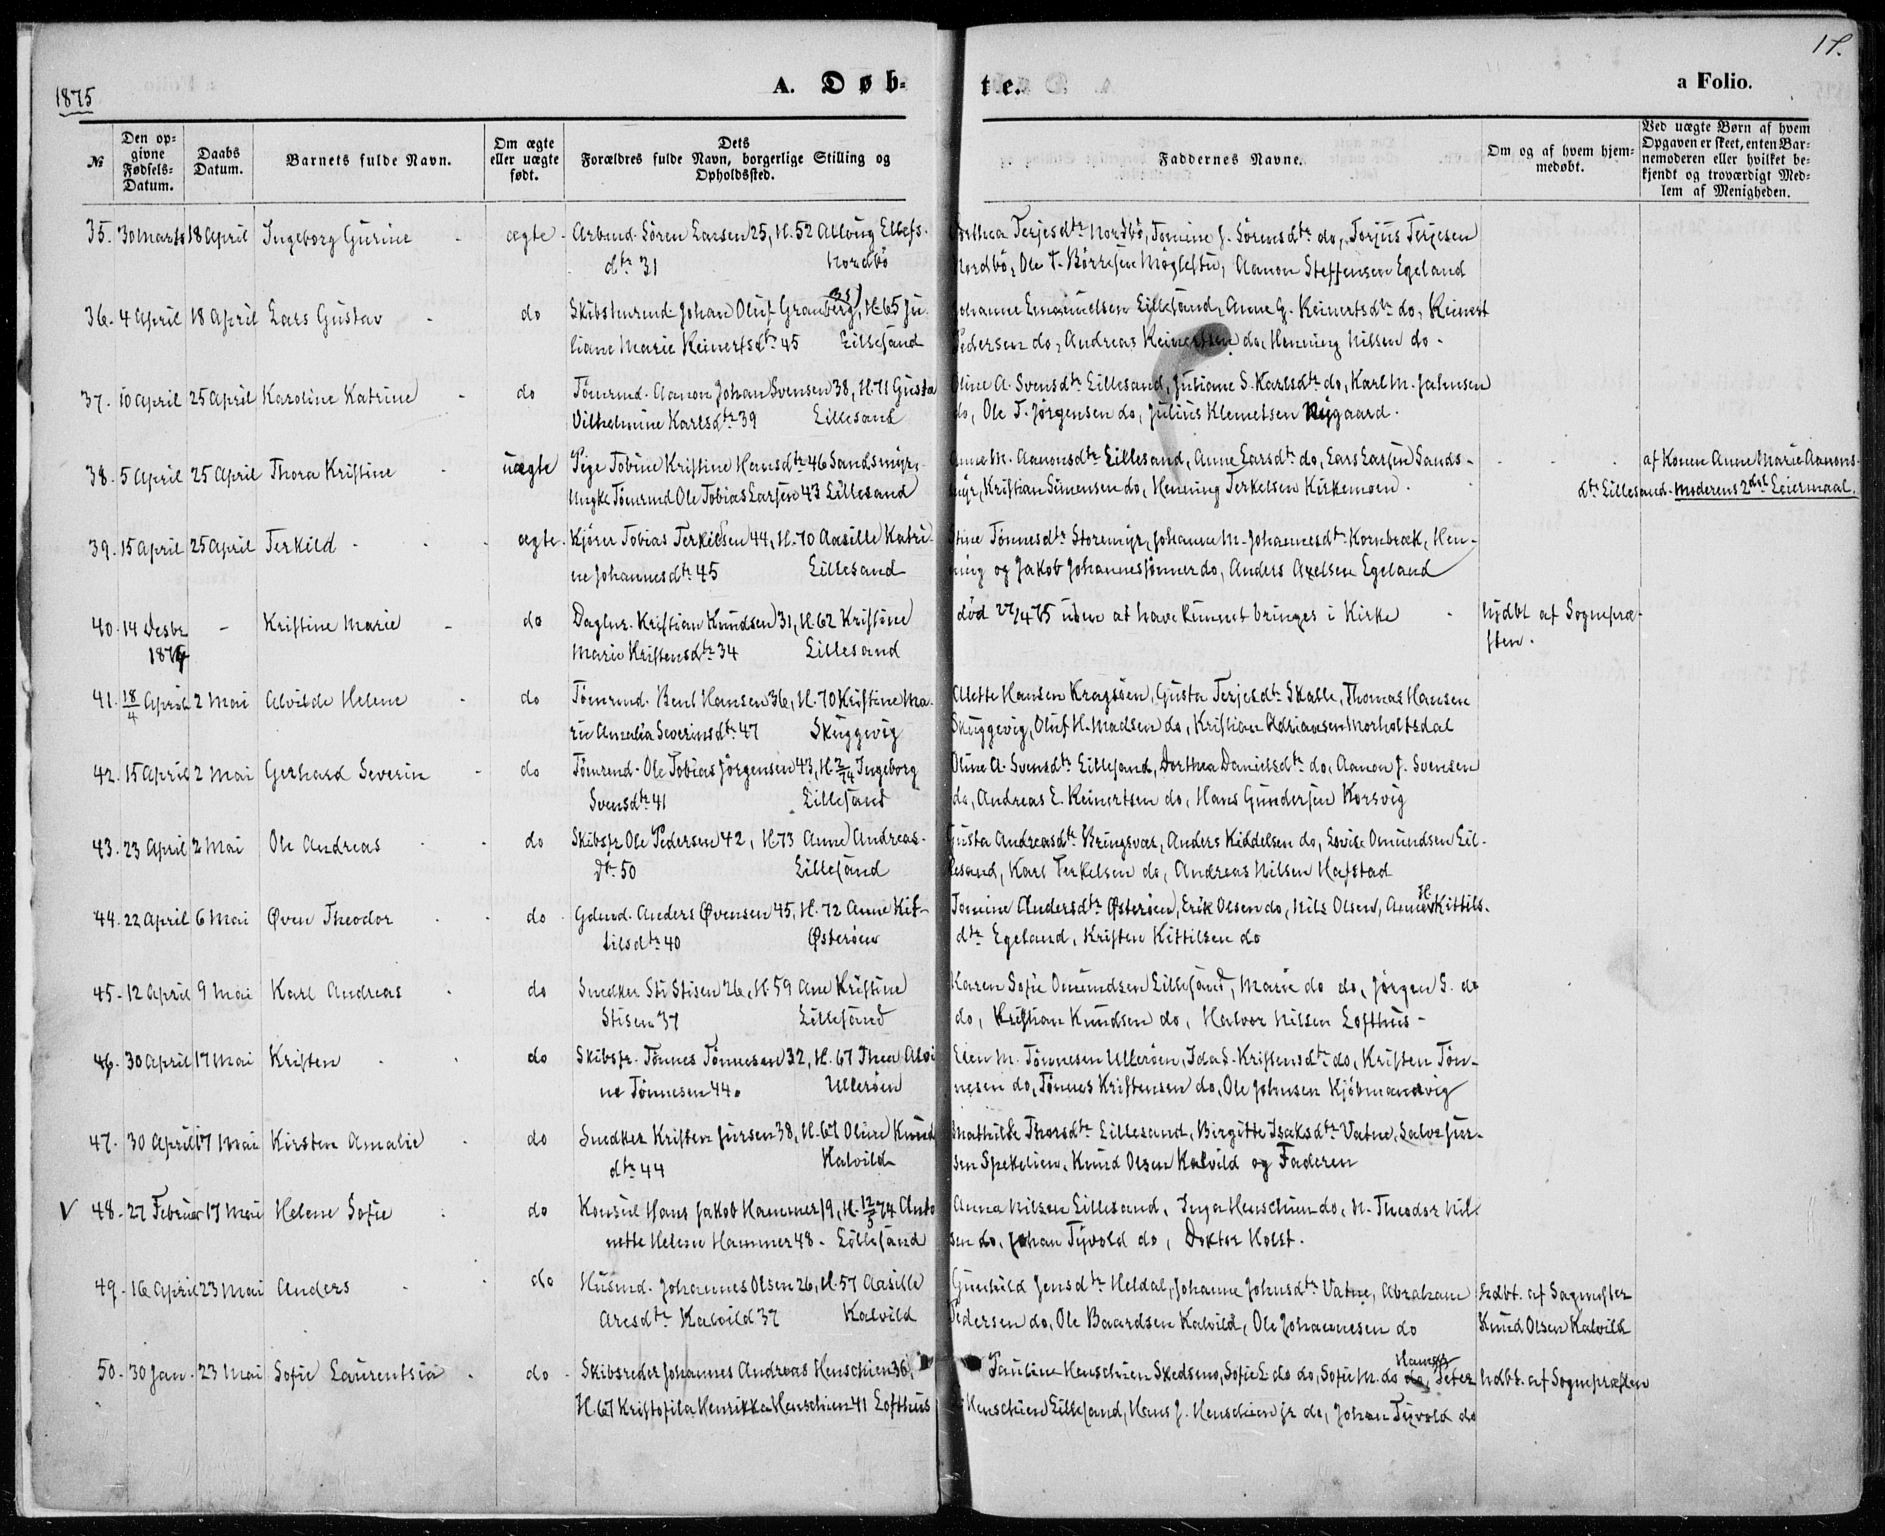 1875
17.
A. Døb-
te.
a Folio.
№
Den op-
givne
Fødsels-
Datum.
Daabs
Datum.
Barnets fulde Navn.
Om ægte
eller uægte
født.
Dets
Forældres fulde Navn, borgerlige Stilling og
Opholdssted.
Faddernes Navne.
Om og af hvem hjem-
medøbt.
Ved uægte Børn af hvem
Opgaven er skeet, enten Bar-
nemoderen eller hvilket be-
kjendt og troværdigt Med-
lem af Menigheden.
35. 30 Marts 18 April Ingeborg Gurine - ægte. Arbmd. Sören Larsen 25, H. 52 Allvug Ellefs- Terjesdtr Nordbö, Tomine J. Sörensdtr do, Torjus Terjesen
dtr 31 Nordbö Nordbö, Ole T. Börresen Møglestu, Aanon Steffensen Egeland
36. 4 April 18 April Lars Gustav - do Skibstmrmd Johan Oluf Granberg 35), H. 65 Ju- Johanne Emanuelsen Lillesand, Anne G. Reinertsdtr do, Reinert
liane Marie Reinertsdtr 45 Lillesand Pedersen do, Andreas Reinertsen do, Henning Nilsen do.
37. 10 April 25 April Karoline Katrine - do Tömrmd. Aanon Johan Svensen 38, H. 71 Gusta Oline A. Svensdtr Lillesand, Juliane S. Karlsdtr do, Karl M. Jahnsen
Vilhelmine Karlsdtr 39 Lillesand do, Ole T. Jörgensen do, Julius Klemetsen Nygaard.
38. 5 April 25 April Thora Kristine - uægte Pige Tobine Kristine Hansdtr 46 Sandsmyr, Anne M. Aanonsdtr Lillesand, Anne Larsdtr do, Lars Larsen Sands- - - - af Konen Anne Marie Aanons-
Ungke Tömrmd Ole Tobias Larsen 43 Lillesand myr, Kristian Simensen do, Henning Terkelsen Kirkemoen. dtr Lillesand. Moderens 2det Leiermaal.
39. 15 April 25 April Terkild - ægte. Kjörer Tobias Terkildsen 44, H. 70 Aasille Katri- Stine Tönnesdtr Storemyr, Johanne M. Johannesdtr Kornbrek, Hen-
ne Johannesdtr 45 Lillesand ning og Jakob Johannesönner do, Anders Axelsen Egeland
40. 14 Desbr - Kristine Marie - do Daglnr. Kristian Knudsen 31, H. 62 Kristine död 27/4 75 uden at have kunnet bringes i Kirke - hjdbt af Sognepræ-
1874 Marie Kristensdtr 34 Lillesand sten.
41. 18/4 April 2 Mai Alvilde Helene - do Tömrmd. Bent Hansen 36, H. 70 Kristine Ma- Alette Hansen Kragsöen, Gusta Terjesdtr Skalle, Thomas Hansen
rie Amalia Severinsdtr 47 Skuggevig Skuggevig, Oluf H. Madsen do, Kristian Adriansen Morholtsdal
42. 15 April 2 Mai Gerhard Severin - do Tömrmd. Ole Tobias Jörgensen 43, H. 2/74 Ingeborg Oline A. Svensdtr Lillesand, Dorthea Danielsdtr do, Aanon J. Svensen
Svensdtr 41 Lillesand do, Andreas E. Reinertsen do, Hans Gundersen Korsvig
43. 23 April 2 Mai Ole Andreas - do Skibsfr. Ole Pedersen 42, H. 73 Anne Andreas- Gusta Andreasdtr Bringsvær, Anders Kiddelsen do, Lovise Omundsen Lil-
dtr 50 Lillesand lesand, Karl Terkelsen do, Andreas Nilsen Hafstad
44. 22 April 6 Mai Øven Theodor - do. Gdmd. Anders Øvensen 45, H. 72 Anne Kit- Tomine Andersdtr Østeröen, Erik Olsen do, Nils Olsen, Anne H. Kittils-
tilsdtr 40 Østeröen dtr Egeland, Kristen Kittilsen do
45. 12 April 9 Mai Karl Andreas - do Snedker Sti Stisen 26, H. 59 Ane Kristine Karen Sofie Omundsen Lillesand, Marie do do, Jörgen S. do
Stisen 37 Lillesand do, Kristian Knudsen do, Halvor Nilsen Lofthus -
46. 30 April 17 Mai Kristen - do Skibsfr. Tönnes Tönnesen 32, H. 67 Thea Alvi- Elen M. Tönnesen Ulleröen, Ida S. Kristensdtr do, Kristen Tön-
ne Tönnesen 44. Ulleröen nesen do, Tönnes Kristensen do, Ole Johnsen Kjöbmandsvig
47. 30 April 17 Mai Kirsten Amalie - do Snedker Kristen Jursen 38, H. 67 Oline Knuds- Mathilde Thorsdtr Lillesand, Birgitte Isaksdtr Vatne, Salve Jur-
dtr 44 Kalvild sen Spekelien, Knud Olsen Kalvild og Faderen
V 48. 27 Februar 17 Mai Helene Sofie - do Konsul Hans Jakob Hammer 19, H. 12/3 74 Anto- Anna Nilsen Lillesand, Inga Henschien do, N. Theodor Nil-
nette Helene Hammer 48. Lillesand sen do, Johan Tyvold do, Doktor Holst.
49. 16 April 23 Mai Anders - do Husmd. Johannes Olsen 26, H. 57 Aasille Gunhild Jensdtr Heldal, Johanne Johnsdtr Vatne, Abraham hdbt. af
Aresdtr Kalvild 37 Kalvild Pedersen do, Ole Baardsen Kalvild, Ole Johannesen do Knud Olsen Kalvild
50. 30 Jan. 23 Mai Sofie Laurentsia - do. Skibsreder Johannes Andreas Henschien 36, Pauline Henschien Skedsmo, Sofie L. do do, Sofie M. do Hammer, Peter hdbt. af Sognepræsten
H. 67 Kristofila Henrikka Henschien 41 Lofthus Henschien Lillesand, Hans J. Henschien jr do, Johan Tyvold do